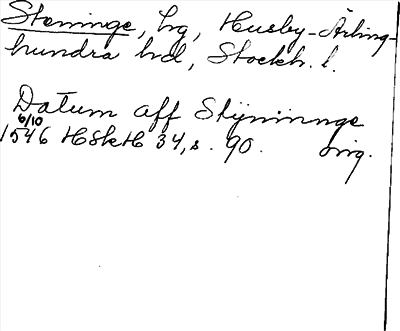 Steninge, hg, Husby-Ärling-
hundra hd, Stockh. l.
Datum aff Stijninnge
6/10
1546 HSkH 34, s. 90. orig.